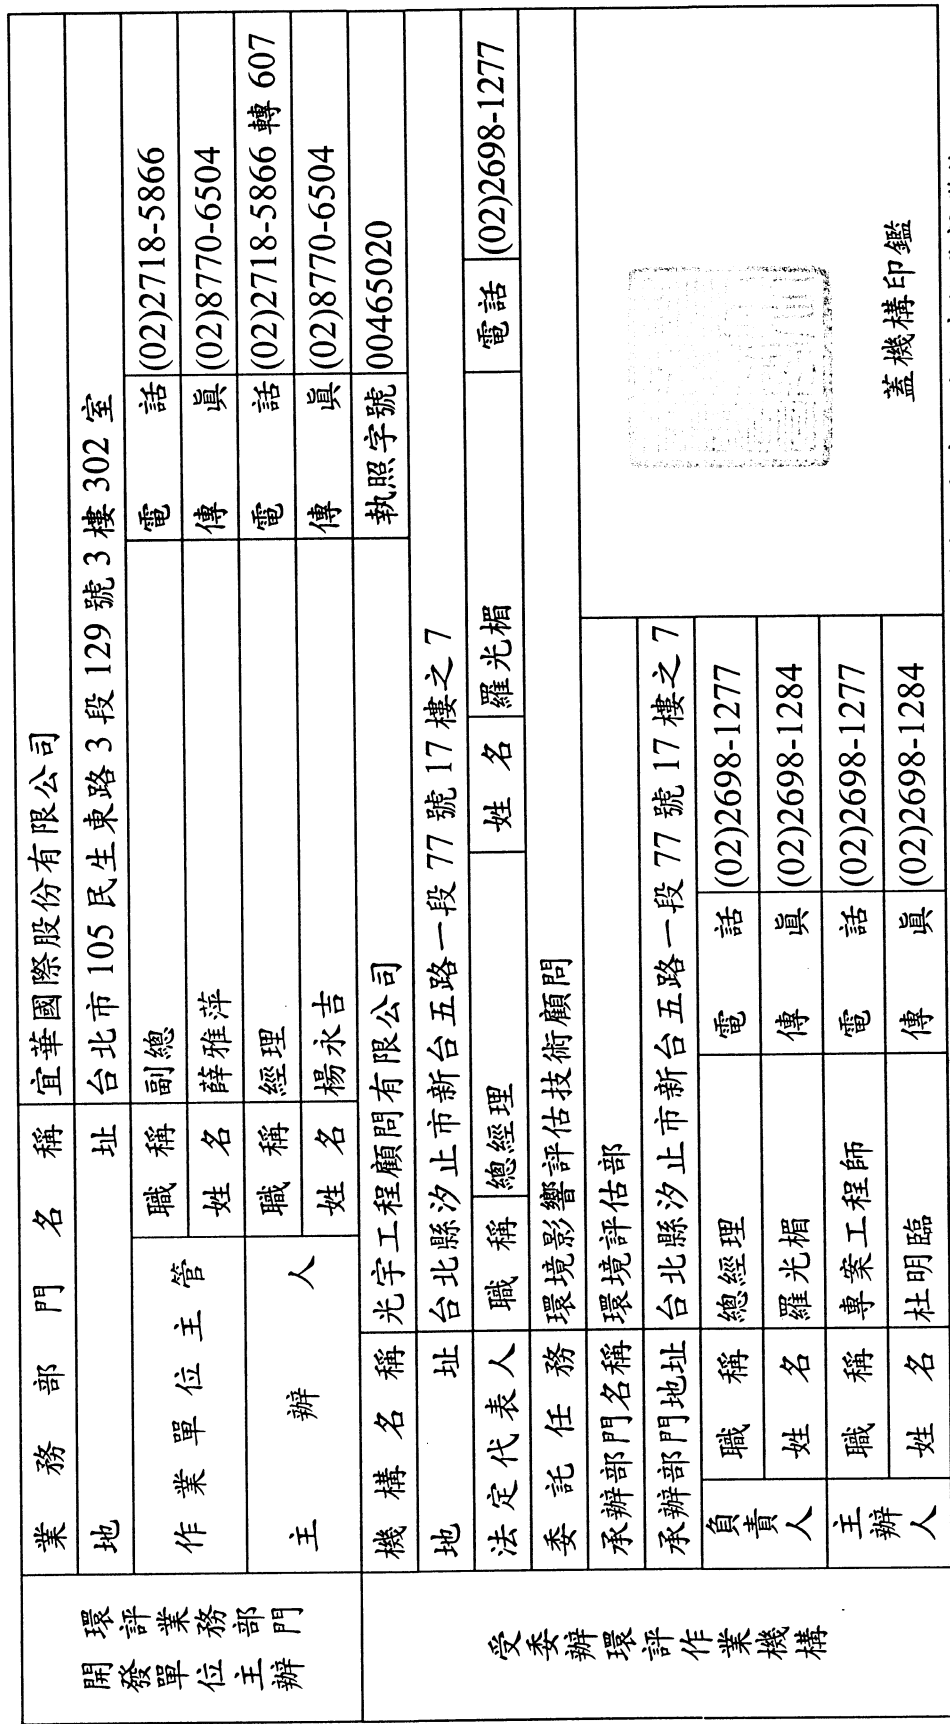 開發單位主辦環評業務部門
業務部門名稱 宜華國際股份有限公司
地址 台北市105民生東路3段129號3樓302室
作業單位主管 職稱 副總 電話 (02)2718-5866
姓名 薛雅萍 傳眞 (02)8770-6504
主辦人 職稱 經理 電話 (02)2718-5866 轉 607
姓名 楊永吉 傳眞 (02)8770-6504
受委辦環評作業機構
機構名稱 光宇工程顧問有限公司 執照字號 00465020
地址 台北縣汐止市新台五路一段77號17樓之7
法定代表人 職稱 總經理 姓名 羅光楣 電話 (02)2698-1277
委託任務 環境影響評估技術顧問
承辦部門名稱 環境評估部
承辦部門地址 台北縣汐止市新台五路一段77號17樓之7
負責人 職稱 總經理 電話 (02)2698-1277
姓名 羅光楣 傳眞 (02)2698-1284
主辦人 職稱 專案工程師 電話 (02)2698-1277
姓名 杜明臨 傳眞 (02)2698-1284
蓋機構印鑑